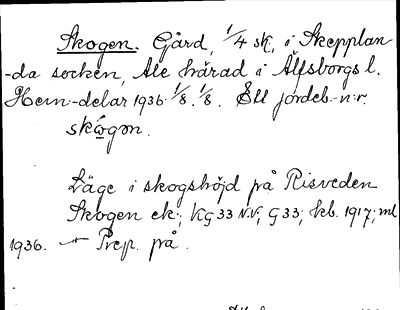 Skogen. Gård, 1/4 sk, i Skepplan-
-da socken, Ale härad i Älfsborgs l.
Hem-delar 1936. 1/8. 1/8. Ett jordeb.-n:r.
skogən.
Läge i skogshöjd på Risveden
Skogen ek., KG 33 N.V., G 33; kb. 1917; ml
1936. Prep. på.